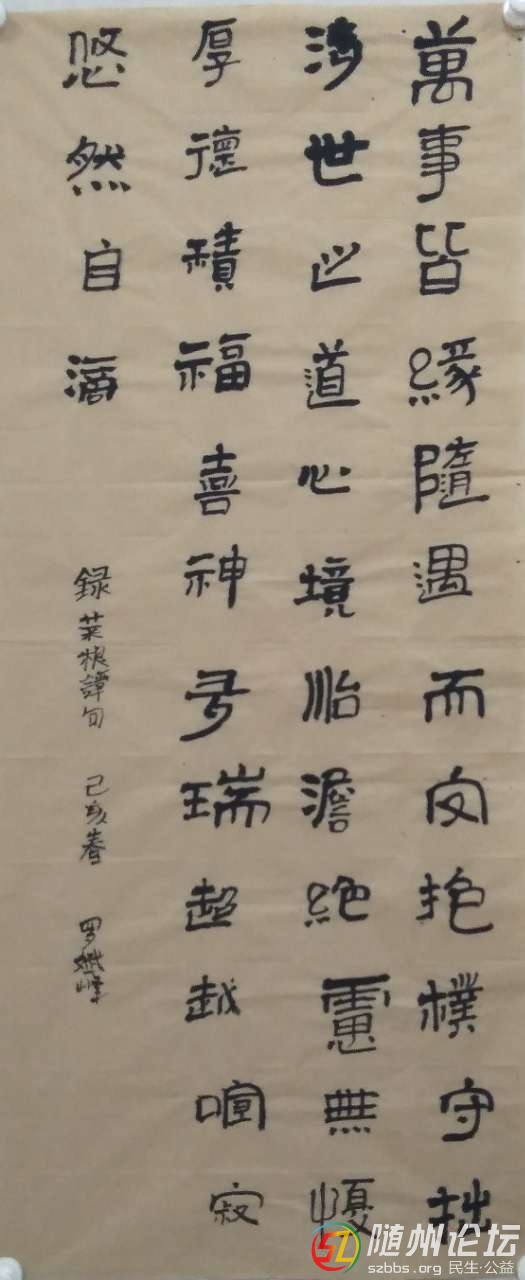 萬事皆緣隨遇而安抱樸守拙
涉世之道心境恬澹絶慮無懮
厚德積福喜神瑞超越喧寂
悠然自滴
録菜根譚句 己亥春 罗峰
随州论坛
szbbs.org 民生·公益